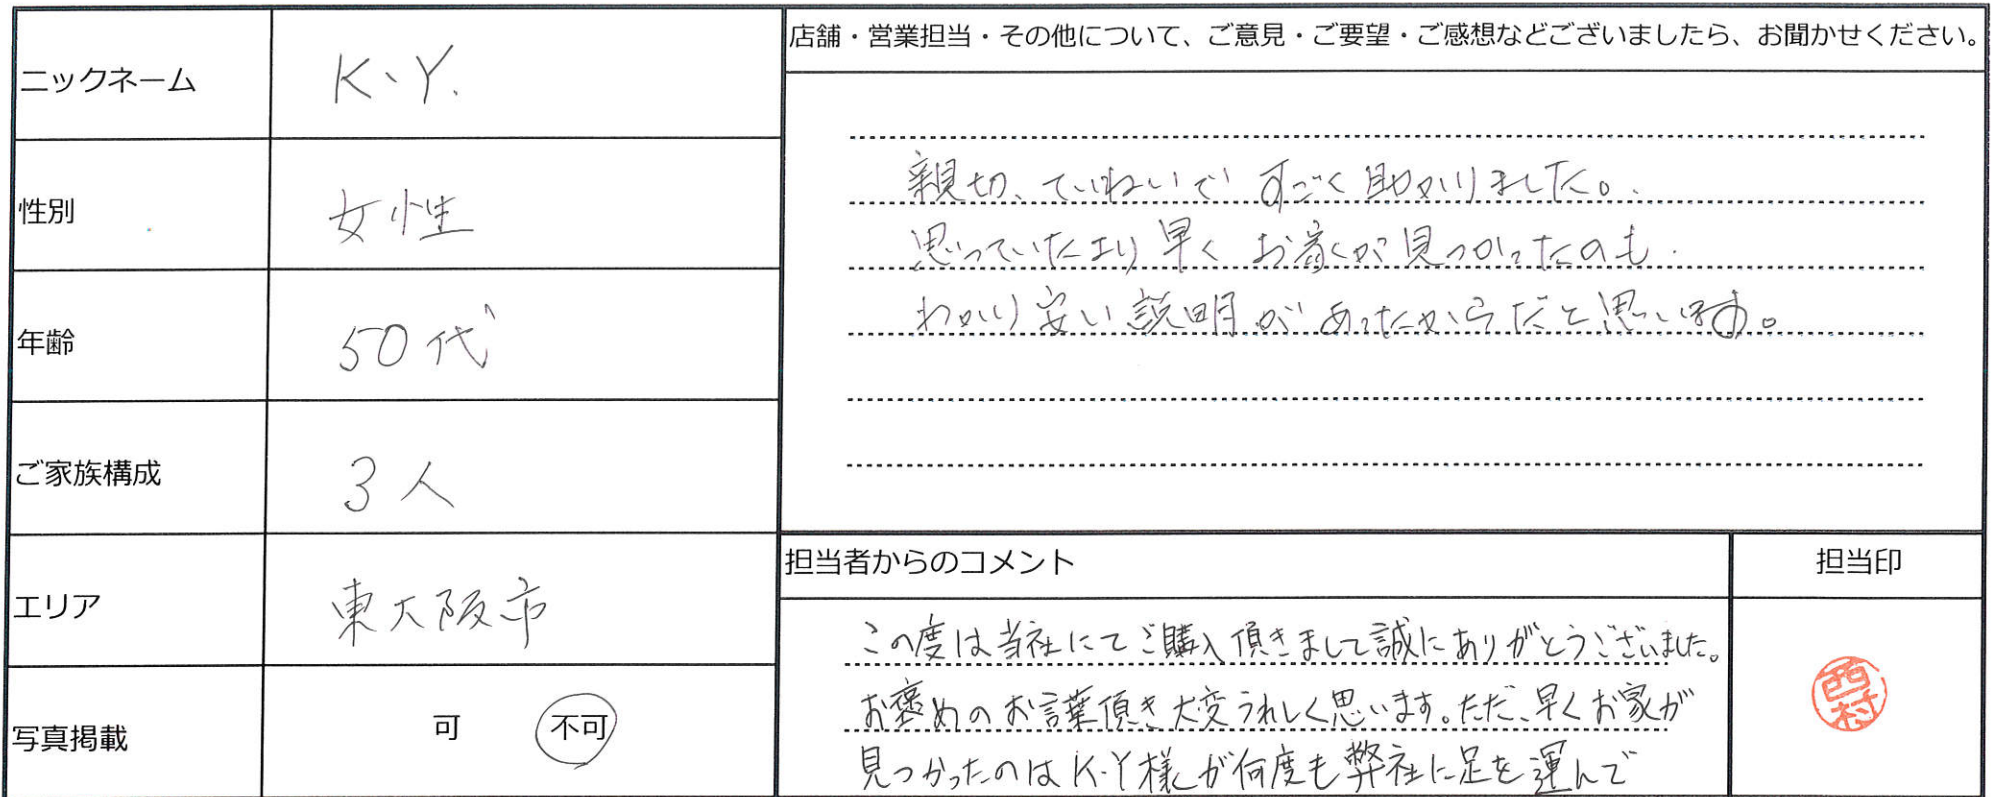 ニックネーム
K、Y.
性別
女性
年齢
50代
ご家族構成
3人
エリア
東大阪市
写真掲載
可 不可
店舗・営業担当・その他について、ご意見・ご要望・ご感想などございましたら、お聞かせください。
親切、ていねいで すごく助かりました。
思っていたより早く お家が見つかったのも
わかり安い説明があったからだと思います。
担当者からのコメント
この度は当社にてご購入頂きまして誠にありがとうございました。
お褒めのお言葉頂き大変うれしく思います。ただ、早くお家が
見つかったのはK・Y様が何度も弊社に足を運んで
担当印
西村